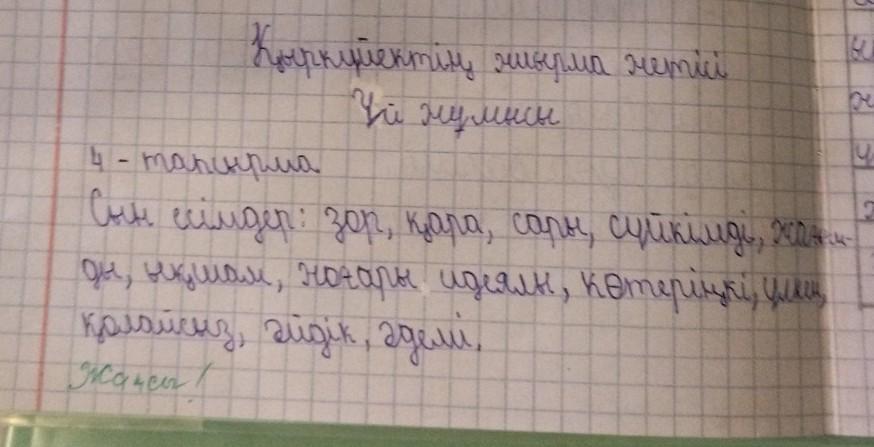 Қыркүйектің жиырма жетісі
Үй жұмысы
4 - тапсырма
Сын есімдер: зор, қара, сары, сүйкімді, жағым-
ды, ықшам, жоғары идеялы, көтеріңкі, үлкен,
қолайсыз, әйдік, әдемі.
Жақсы!